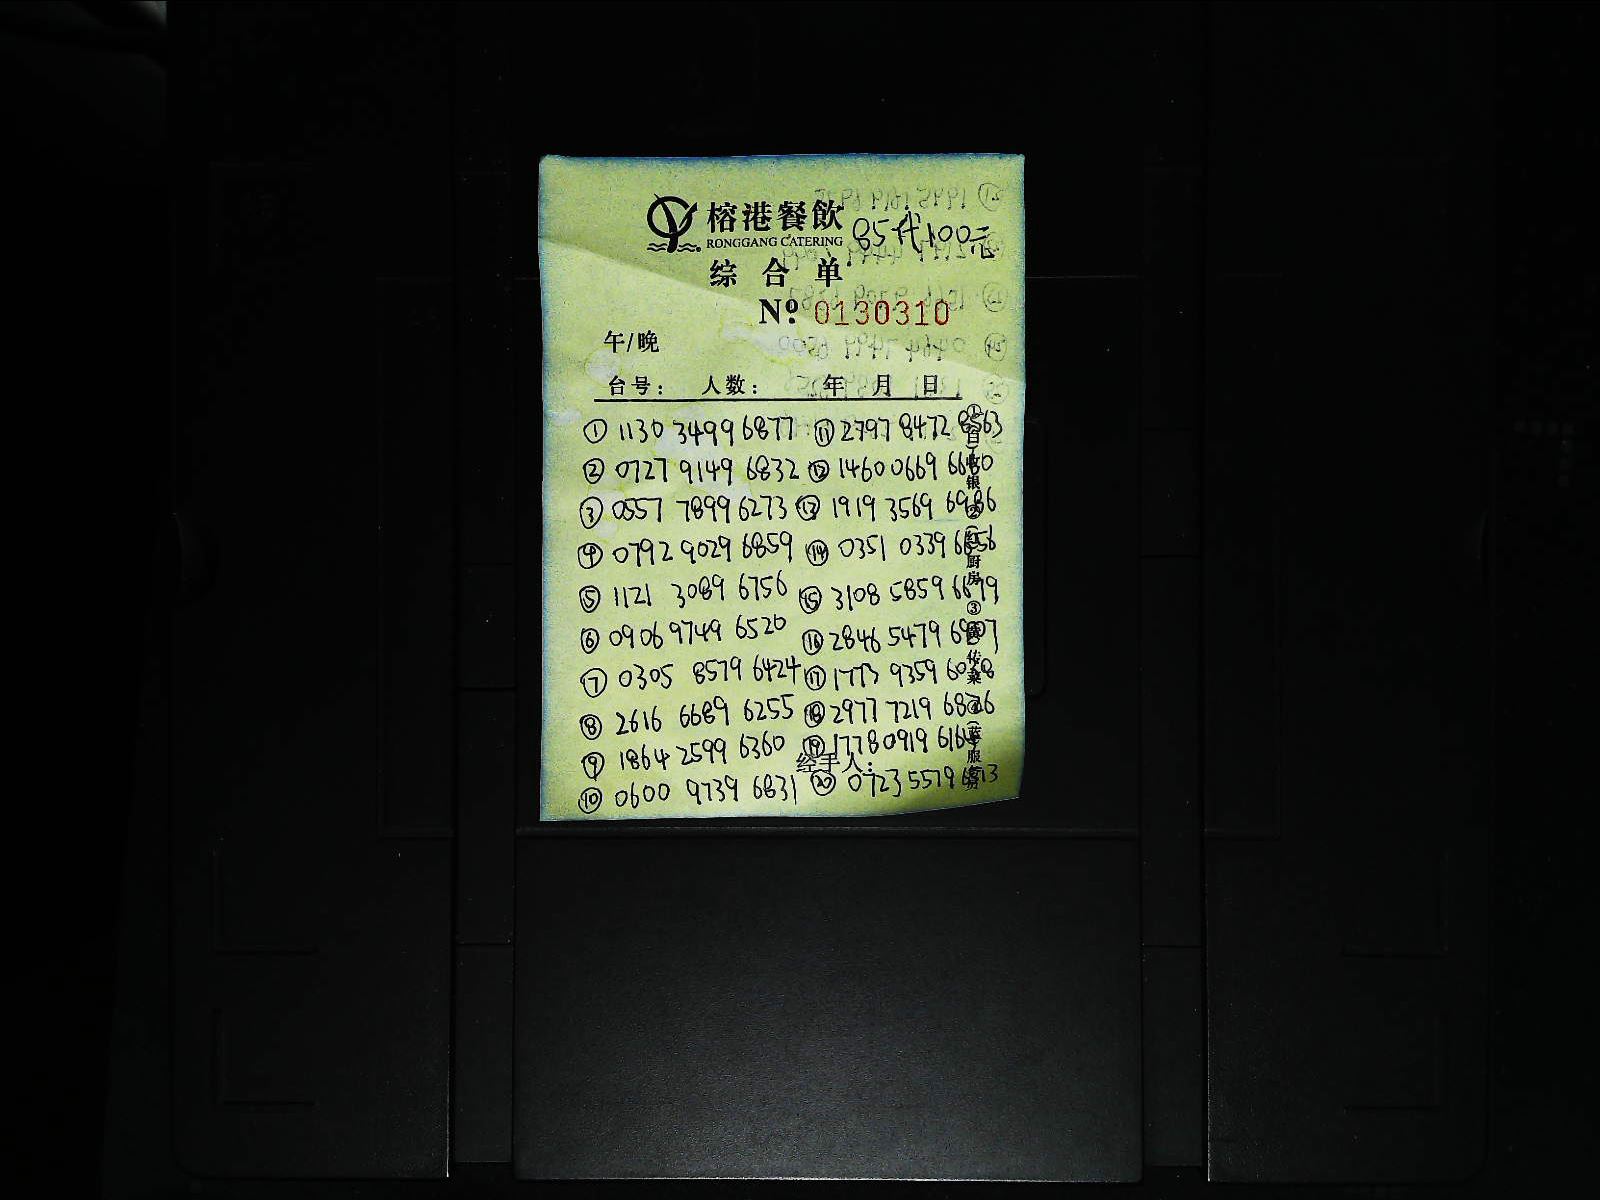 榕港餐飲 85代100元
RONGGANG CATERING
综合单
Nº 0130310
午/晚
台号： 人数： 年 月 日
① 1130 3499 6877 ⑪ 2797 8472 8563
② 0727 9149 6832 ⑫ 1460 0669 6680
③ 0557 7899 6273 ⑬ 1919 3569 6986
④ 0792 9029 6859 ⑭ 0351 0339 6656
⑤ 1121 3089 6756 ⑮ 3108 5859 6679
⑥ 0906 9749 6520 ⑯ 2846 5479
⑦ 0305 8579 6424 ⑰ 1773 9359
⑧ 2616 6689 6255 ⑱ 2977 7219 6826
⑨ 1864 2599 6360 ⑲ 1778 0919 6164
经手人：
⑩ 0600 9739 6831 ⑳ 0723 5579
①(白)收银 ②(红)厨房 ③ 传菜 ④(蓝)服务员